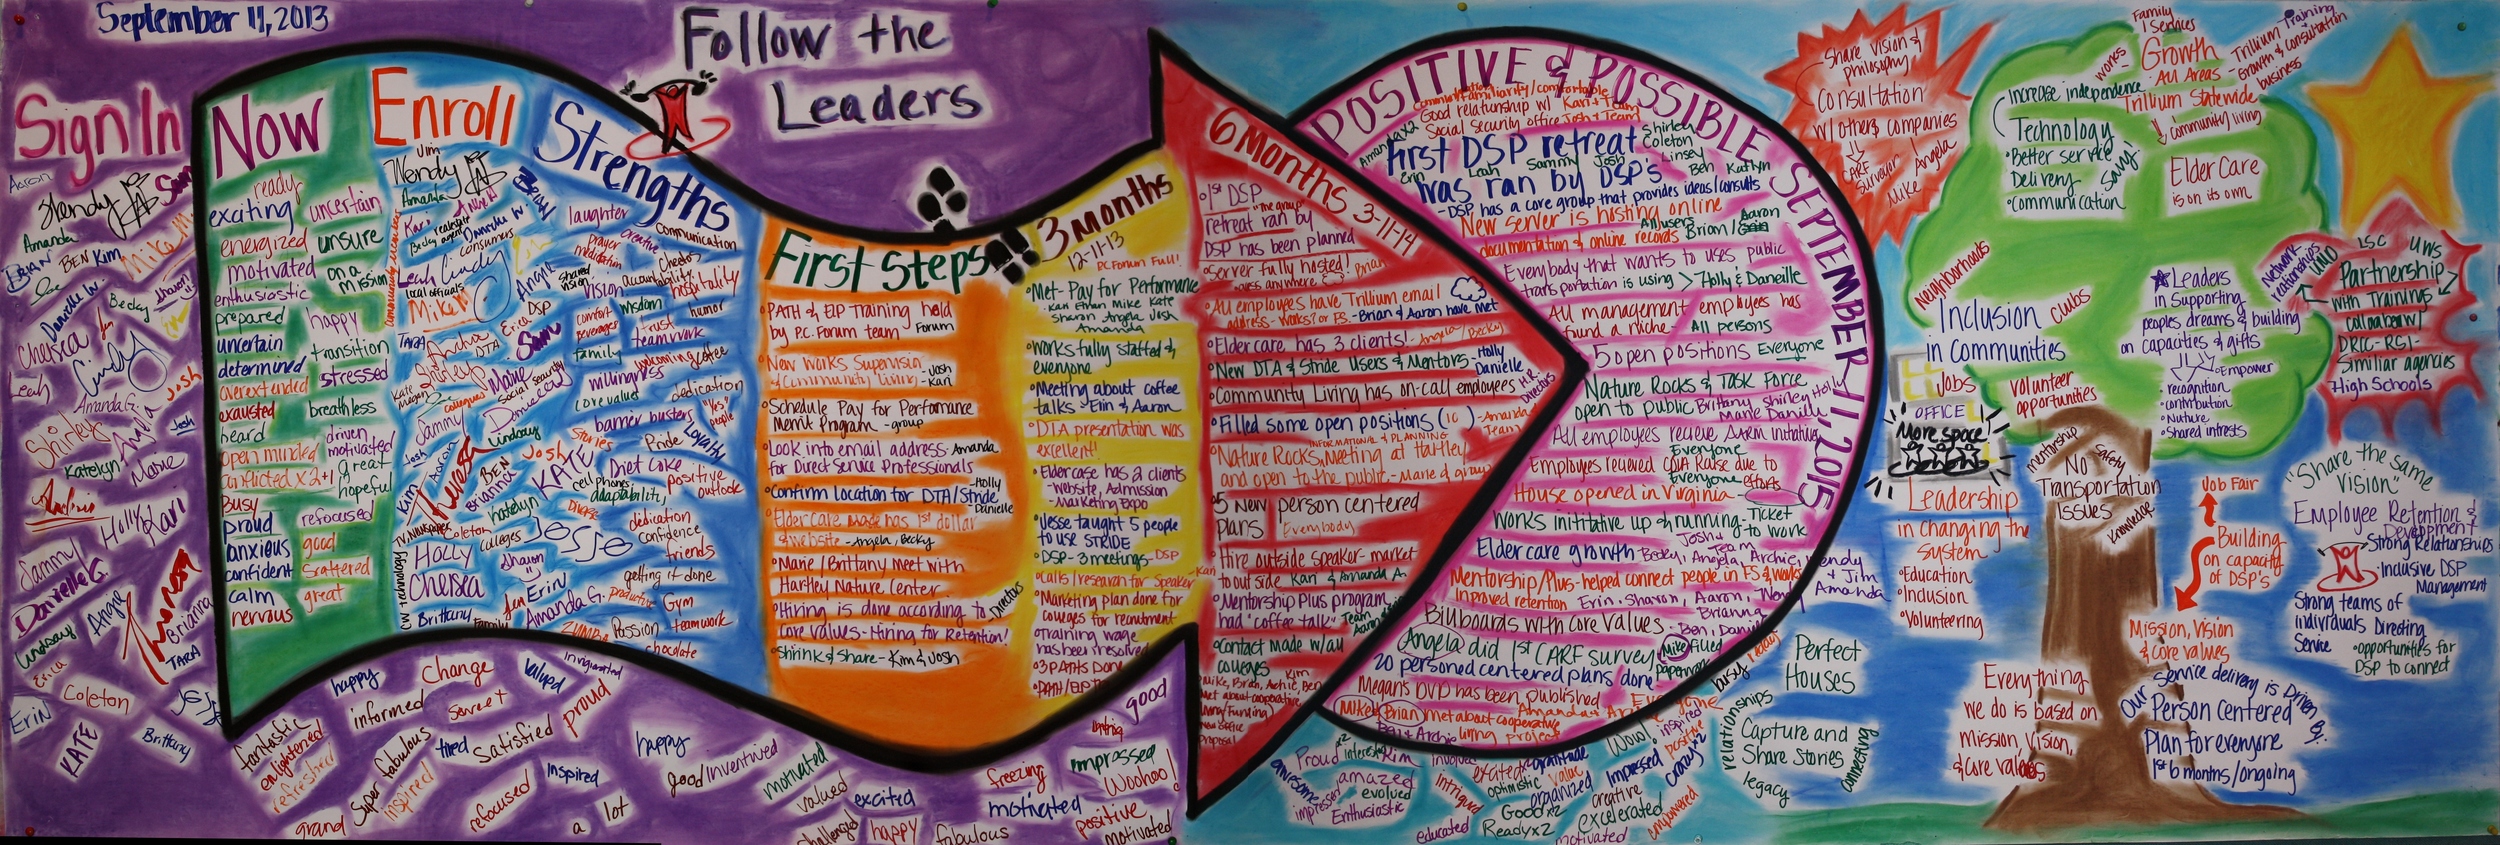 September 11, 2013
Follow the
Leaders
Sign In
Aaron
Wendy
Sam
Amanda
BRIAN
BEN
Kim
Mike
Zoe
Danielle W.
Becky
Sharon
Chelsea
Jen
Cindy
Leah
Josh
Amanda G.
Angela
Shirley
Josh
Katelyn
Marie
Archie
Holly
Kari
Sammy
Danielle G.
Angie
Theresa
Brianna
Lindsay
TARA
Erica
Coleton
Erin
KATE
Brittany
Jesse
Now
ready
exciting
uncertain
energized
unsure
motivated
on a
mission
enthusiastic
prepared
happy
uncertain
transition
determined
stressed
overextended
exausted
breathless
heard
driven
open minded
motivated
conflicted x2+1
great
hopeful
Busy
proud
refocused
anxious
good
confident
scattered
calm
great
nervous
Enroll
Jim
Wendy
Amanda
Kari
realestate
agent
Becky
Danielle W.
consumers
BRIAN
community members
Leah
Cindy
local officials
Angie
Mike
Erica
DSP
TARA
Archie
DTA
Sam
Kate
Shirley
Marie
Social Security
Megan
Zoe
colleagues
Denice
Sammy
Lindsay
Josh
Aaron
BEN
Josh
Kim
Theresa
Brianna
KATE
cell phones
Katelyn
TV, Newspapers
Coleton
Colleges
Jesse
HOLLY
Sharon
Chelsea
Jen
Erin
CW technology
Brittany
Family
Amanda G.
Strengths
laughter
communication
prayer
meditation
creative
shared
vision
vision
accountability
Cheetos
hospitality
wisdom
humor
comfort
beverages
trust
teamwork
family
welcoming
coffee
willingness
dedication
core values
barrier busters
"Yes"
people
Stories
Pride
Loyalty
Diet Coke
positive
outlook
adaptability
Diverse
dedication
confidence
friends
getting it done
productive
Gym
teamwork
ZUMBA
Passion
chocolate
First Steps
PATH & ELP Training held
by P.C. Forum team
Forum
New Works Supervision
& Community Living
-Josh
-Kari
Schedule Pay for Performance
Merit Program -group
Look into email address -Amanda
for Direct Service Professionals
Confirm location for DTA/Stride
-Holly
Danielle
Elder care has 1st dollar
& website -Angela, Becky
Marie/Brittany Meet with
Hartley Nature Center
Hiring is done according to
core values - Hiring for Retention!
-Directors
Shrink & Share - Kim & Josh
3 months
12-11-13
PC Forum Full!
Met - Pay for Performance
Kari Ethan Mike Kate
Sharon Angela Josh
Amanda
Works fully staffed &
everyone
Meeting about coffee
talks - Erin & Aaron
DTA presentation was
excellent!
Eldercase has 2 clients
-Website, Admission
-Marketing Expo
Jesse taught 5 people
to use STRIDE
DSP - 3 meetings - DSP
calls/research for Speaker -Kari
Marketing plan done for
colleges for recruitment
Training wage
has been resolved
3 PATHS Done
PATH/ELP
6 Months 3-11-14
1st DSP
retreat ran by
"the group"
DSP has been planned
Server fully hosted!
access anywhere
Brian
All employees have Trillium email
address - Works? or FS. -Brian & Aaron have met
Eldercare has 3 clients! -Angela/Becky
New DTA & Stride Users & Mentors -Holly
Danielle
Community Living has on-call employees
H.R.
Directors
Filled some open positions (10) -Amanda
Team
INFORMATIONAL & PLANNING
Nature Rocks, Meeting at Hartley
and open to the public. -Marie & group
5 New person centered
plans
Everybody
Hire outside speaker - market
to outside Kari & Amanda A.
Mentorship Plus program
had "coffee talk"
Team
Aaron
Contact made w/all
colleges
Kim
Mike, Brian, Archie, Ben
Met about cooperative
living/funding
Proposal
POSITIVE & POSSIBLE SEPTEMBER 11, 2015
Communication
Familiarity/comfortable
Good relationship w/ Kari + Team
Social Security office Josh + Team
Amanda x2
first DSP retreat
Shirley
Coleton
Erin
Leah
Sammy
Josh
Linsey
Ben
Katlyn
was ran by DSP's
-DSP has a core group that provides ideas/consults
New Server is hosting online
documentation & online records
All users
Brian/
Aaron
Everybody that wants to uses public
transportation is using > Holly & Daneille
All management employees has
found a niche - All persons
5 open positions Everyone
Nature Rocks & Task Force
open to public Brittany Shirley Holly
Marie Danille
All employees recieve AARM initiative
Everyone
Employees recieved COLA Raise due to
Everyone efforts
House opened in Virginia
Works initiative up & running - Ticket
to work
Elder care growth - Becky, Angela, Archie, Wendy
Josh +
Team
+ Jim
Mentorship/Plus - helped connect people in FS & works
Improved retention Erin, Sharon, Aaron, Wendy
Amanda
Brianna
Billboards with core values - Ben, Danielle
Angela did 1st CARF survey
Mike Filled
paperwork
20 personed centered plans done
Megan's DVD has been published
Mike & Brian met about cooperative
living project
Ben & Archie
happy
Change
Valued
invigorated
informed
Sweet
proud
fantastic
enlightened
refreshed
fabulous
tired
Satisfied
Super
inspired
refocused
Inspired
grand
a lot
happy
good
inventived
motivated
valued
challenged
excited
happy
fabulous
freezing
motivated
good
impressed
Woohoo!
positive
motivated
Proud
x2
interesting
Kim
awesome
amazed
impressed
evolved
Enthusiastic
involved
Intrigued
educated
excited
gratitude
optimistic
Value
organized
Good x2
Ready x2
Wow!
impressed
creative
excelerated
motivated
inspired
positive
Crazy x2
empowered
busy
relationships
Perfect
Houses
Capture and
Share Stories
legacy
connecting
Share vision &
philosophy
Consultation
w/others companies
CARF
Surveyor
Angela
Mike
Family
Services
Growth
All Areas
-Trillium Training
Growth & Consultation
business
works
Increase independence
Trillium Statewide
Community living
Technology
Better service
Delivery
Communication
Savy.
Elder Care
is on its own
Neighborhoods
Inclusion
in Communities
clubs
Jobs
volunteer
opportunities
OFFICE
More space
Leaders
in Supporting
peoples dreams & building
on capacities & gifts
Empower
recognition
contribution
Nuture
Shared intrests
Network
relationships
UMD
LSC
UWS
Partnership
with Trainings
callabaw/
DRCC - RSI -
Similiar agencies
High Schools
Leadership
in changing the
System
Education
Inclusion
Volunteering
mentorship
Safety
No
Transportation
Issues
Knowledge
Job Fair
Building
on capacity
of DSP's
Mission, Vision
& core values
"Share the same
Vision"
Employee Retention &
Development
Strong Relationships
Inclusive DSP
Management
Strong teams of
individuals Directing
Service
opportunities for
DSP to connect
Everything
we do is based on
Mission, Vision,
& core values
Our Service delivery is Driven By:
Person Centered
Plan for everyone
1st 6 months/ongoing